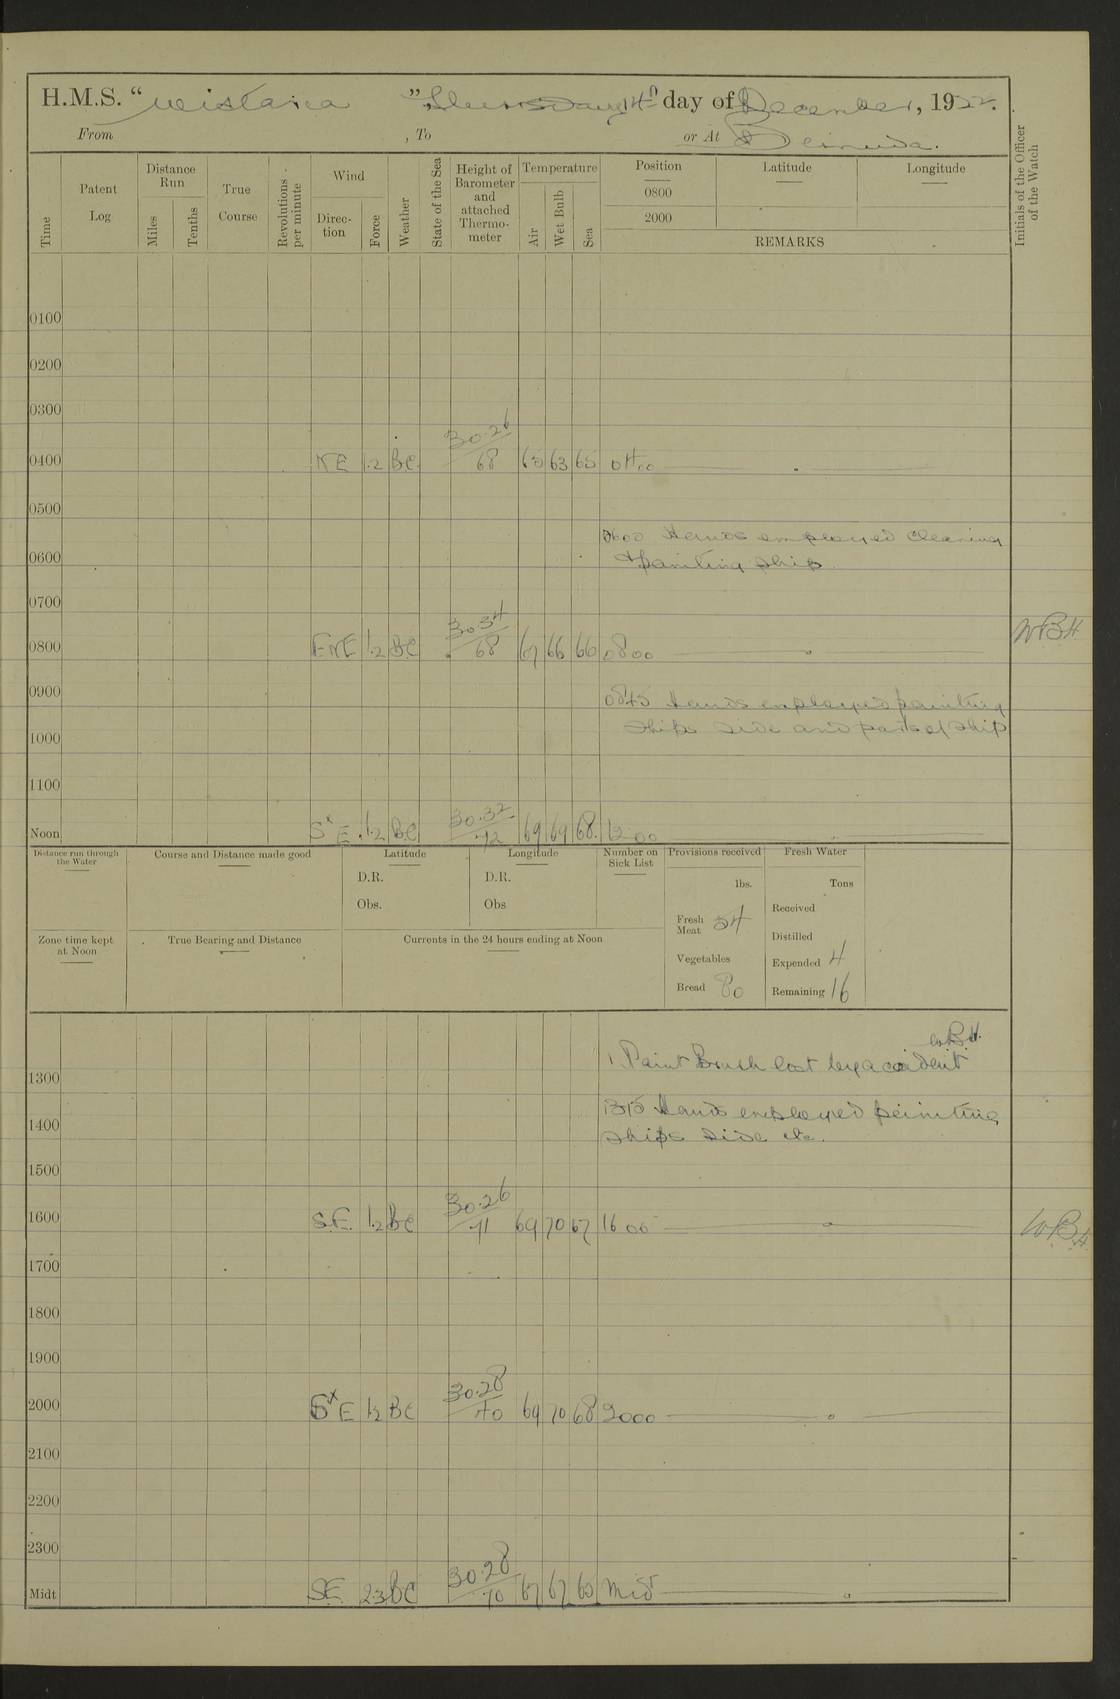 H.M.S. "Wistaria", Thursday 14th day of December, 1922.
From , To or At Bermuda.
Time
Patent Log
Distance Run
Miles
Tenths
True Course
Revolutions per minute
Wind
Direction
Force
Weather
State of the Sea
Height of Barometer and attached Thermometer
Temperature
Air
Wet Bulb
Sea
Position
0800
2000
Latitude
Longitude
REMARKS
Initials of the Officer of the Watch
0100
0200
0300
0400 NE 1.2 BC 30.26 68 65 63 65 0400
0500
0600 Hands employed cleaning
0600 & painting ship
0700
0800 ENE 1.2 BC 30.34 68 67 66 66 0800 WBH
0900 0845 Hands employed painting
ships side and parts of ship
1000
1100
Noon SxE 1.2 BC 30.32 72 69 69 68 1200
Distance run through the Water
Course and Distance made good
Latitude
D.R.
Obs.
Longitude
D.R.
Obs
Number on Sick List
Provisions received
lbs.
Fresh Meat 54
Vegetables
Bread 80
Fresh Water
Tons
Received
Distilled
Expended 4
Remaining 16
Zone time kept at Noon
True Bearing and Distance
Currents in the 24 hours ending at Noon
WBH.
1 Paint Brush lost by accident
1300
1315 Hands employed painting
1400
ships side etc.
1500
1600 S.E. 1.2 BC 30.26 71 69 70 67 1600 WBH
1700
1800
1900
2000 SxE 1.2 BC 30.28 70 69 70 68 2000
2100
2200
2300
Midt SE 2.3 BC 30.28 70 67 67 65 Midt